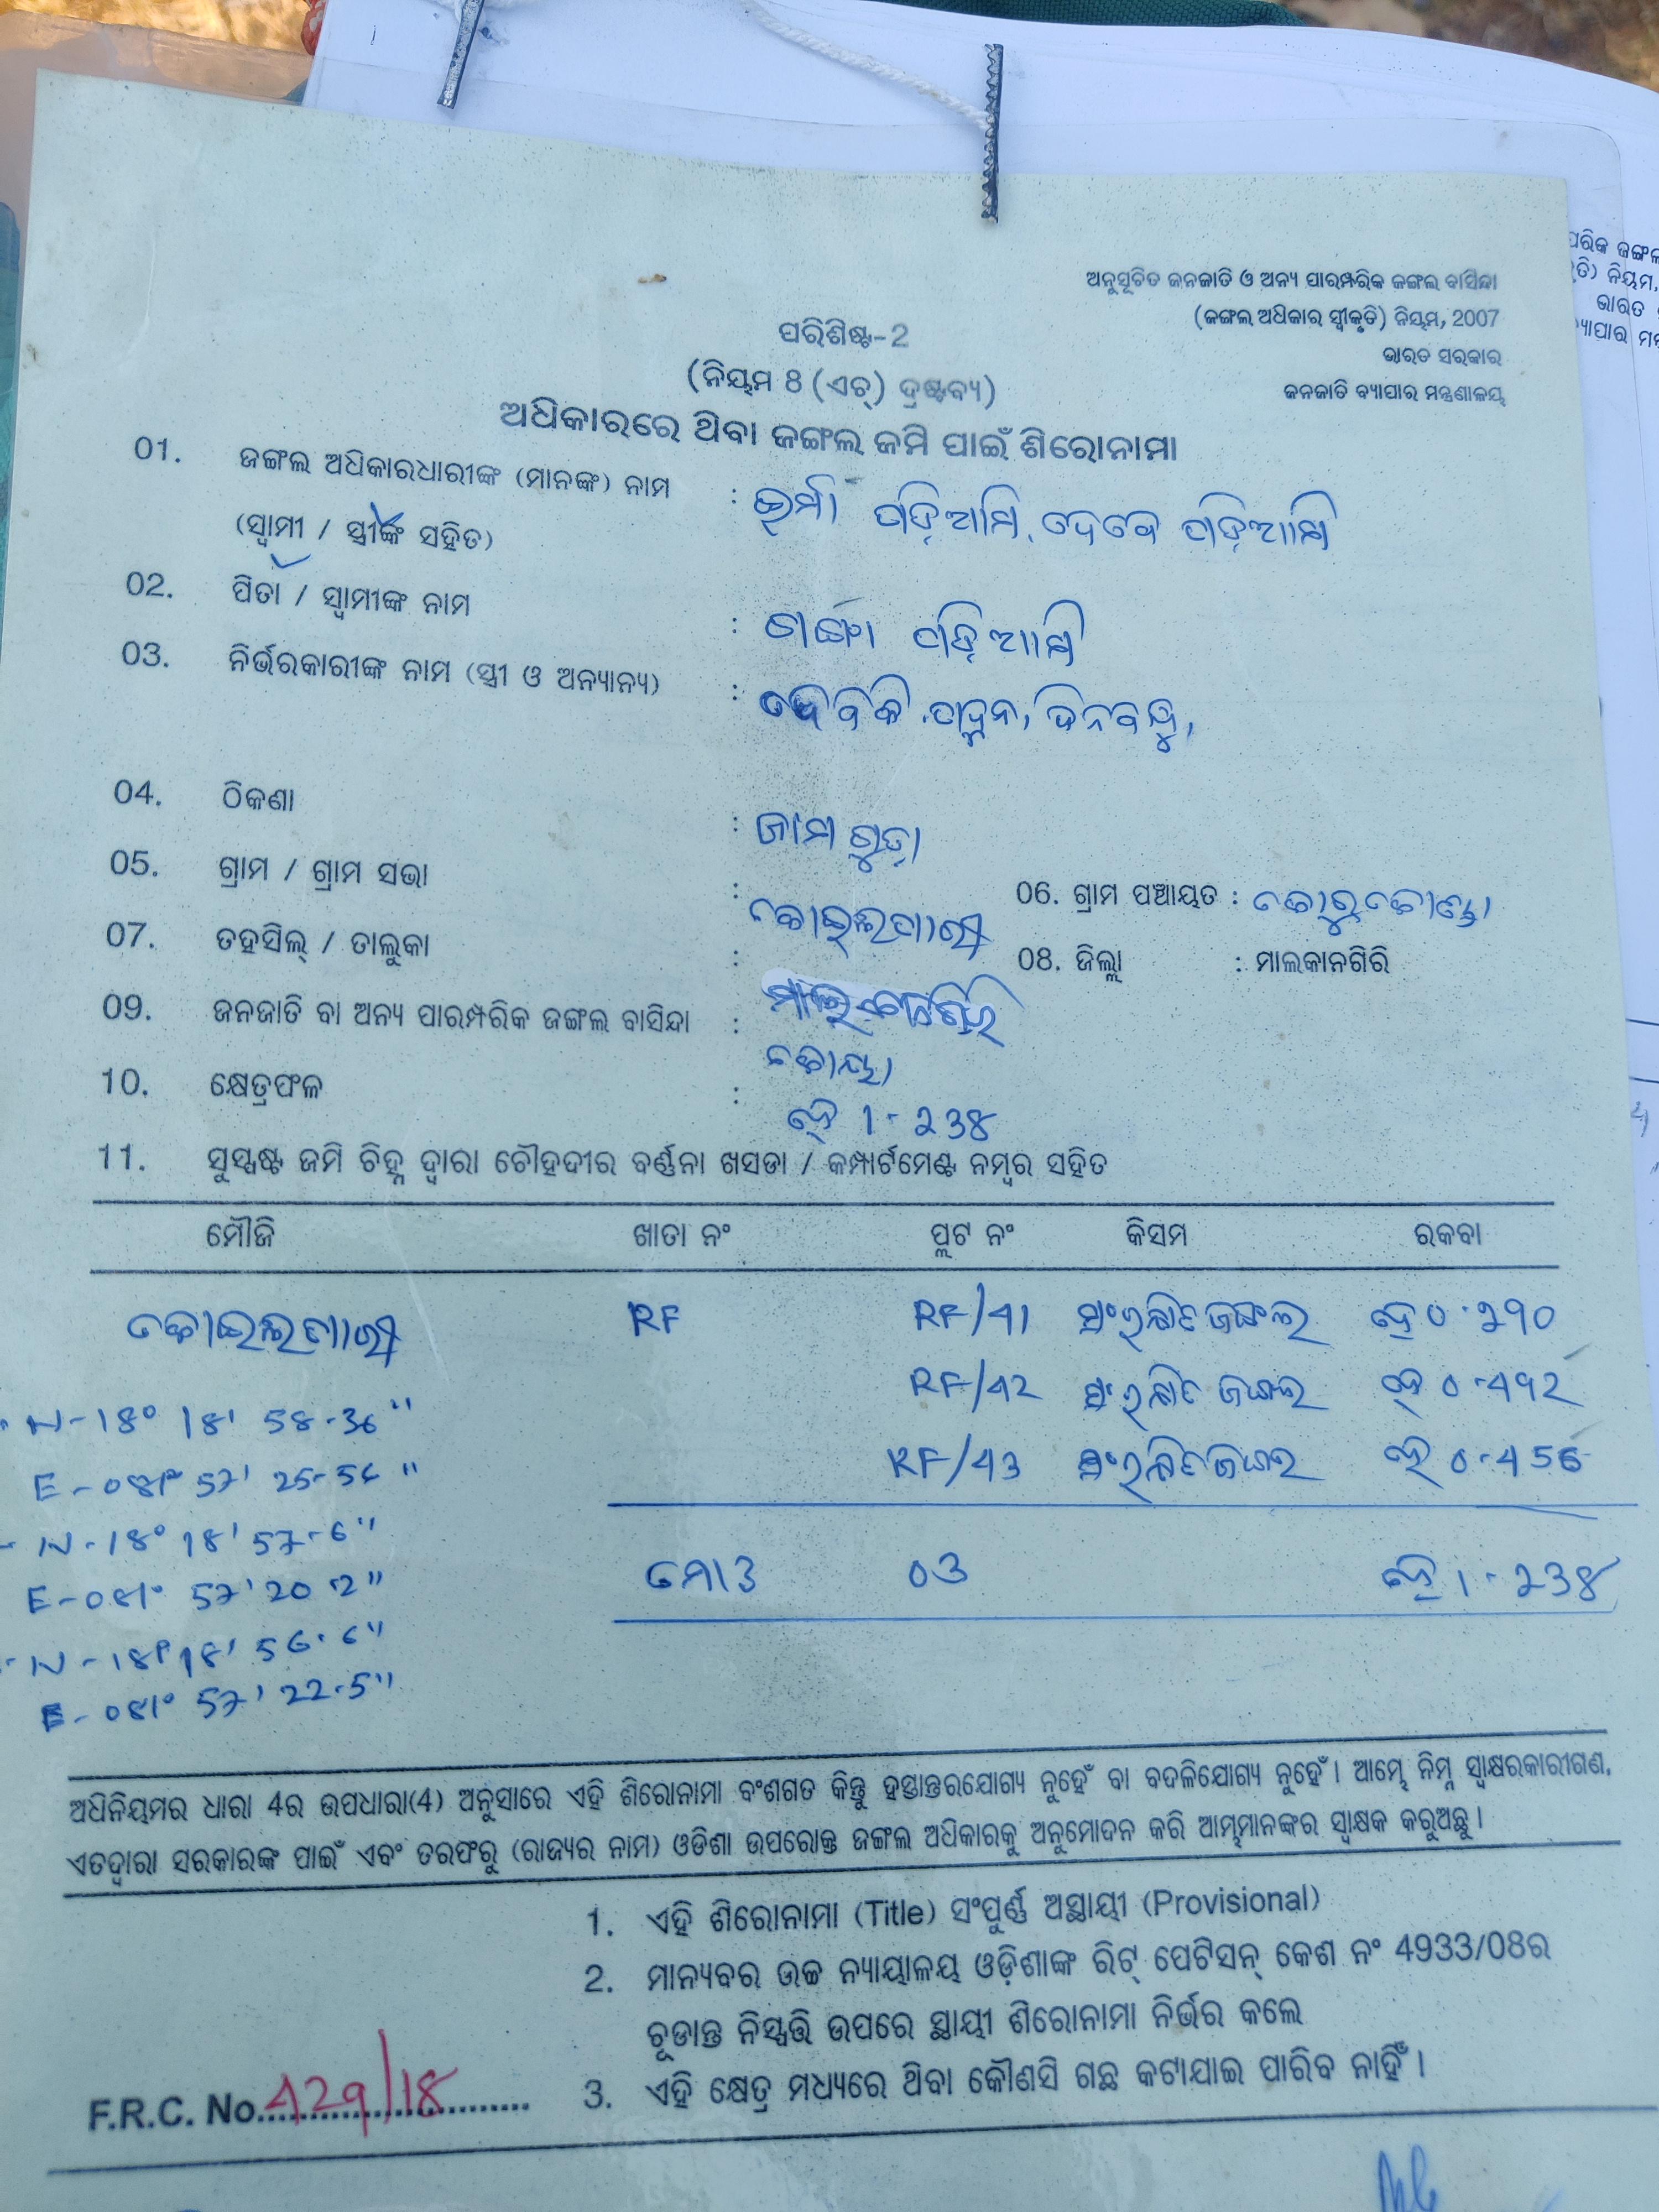 ଅନୁସୂଚିତ ଜନଜାତି ଓ ଅନ୍ୟ ପାରମ୍ପରିକ ଜଙ୍ଗଲ ବାସିନ୍ଦା
(ଜଙ୍ଗଲ ଅଧିକାର ସ୍ୱୀକୃତି) ନିୟମ, 2007
ଭାରତ ସରକାର
ଜନଜାତି ବ୍ୟାପାର ମନ୍ତ୍ରଣାଳୟ
ପରିଶିଷ୍ଟ-2
(ନିୟମ 8 (ଏଚ୍) ଦ୍ରଷ୍ଟବ୍ୟ)
ଅଧିକାରରେ ଥିବା ଜଙ୍ଗଲ ଜମି ପାଇଁ ଶିରୋନାମା
01. ଜଙ୍ଗଲ ଅଧିକାରଧାରୀଙ୍କ (ମାନଙ୍କ) ନାମ : ପଡ଼ିଆମି, ଦେବେ ପଡ଼ିଆମି
(ସ୍ୱାମୀ / ସ୍ତ୍ରୀଙ୍କ ସହିତ)
02. ପିତା / ସ୍ୱାମୀଙ୍କ ନାମ : ପଡ଼ିଆମି
03. ନିର୍ଭରକାରୀଙ୍କ ନାମ (ସ୍ତ୍ରୀ ଓ ଅନ୍ୟାନ୍ୟ) : ଦେବକି, ଦିନବନ୍ଧୁ,
04. ଠିକଣା : ଜାମଗୁଡ଼ା
05. ଗ୍ରାମ / ଗ୍ରାମ ସଭା : କୋଇଲଗାଣ୍ଡି 06. ଗ୍ରାମ ପଞ୍ଚାୟତ : କୋରୁକୋଣ୍ଡା
07. ତହସିଲ୍ / ତାଲୁକା : ମାଲକାନଗିରି 08. ଜିଲ୍ଲା : ମାଲକାନଗିରି
09. ଜନଜାତି ବା ଅନ୍ୟ ପାରମ୍ପରିକ ଜଙ୍ଗଲ ବାସିନ୍ଦା : କୋୟା
10. କ୍ଷେତ୍ରଫଳ : ହେ 1-238
11. ସୁସ୍ପଷ୍ଟ ଜମି ଚିହ୍ନ ଦ୍ୱାରା ଚୌହଦୀର ବର୍ଣ୍ଣନା ଖସଡା / କମ୍ପାର୍ଟମେଣ୍ଟ ନମ୍ବର ସହିତ
ମୌଜି ଖାତା ନଂ ପ୍ଲଟ ନଂ କିସମ ରକବା
RF RF/41 ସଂରକ୍ଷିତ ଜଙ୍ଗଲ ହେ 0.290
RF/42 ସଂରକ୍ଷିତ ଜଙ୍ଗଲ ହେ 0-492
RF/43 ସଂରକ୍ଷିତ ଜଙ୍ଗଲ ହେ 0-456
N-18° 18' 58-36"
E-081° 57' 25-54"
N-18° 18' 57-6"
E-081° 57' 20 2"
N-18° 18' 56.6"
E-081° 57' 22.5"
ମୋଟ 03 ହେ 1-238
ଅଧିନିୟମର ଧାରା 4ର ଉପଧାରା(4) ଅନୁସାରେ ଏହି ଶିରୋନାମା ବଂଶଗତ କିନ୍ତୁ ହସ୍ତାନ୍ତରଯୋଗ୍ୟ ନୁହେଁ ବା ବଦଳିଯୋଗ୍ୟ ନୁହେଁ। ଆମ୍ଭେ ନିମ୍ନ ସ୍ୱାକ୍ଷରକାରୀଗଣ,
ଏତଦ୍ୱାରା ସରକାରଙ୍କ ପାଇଁ ଏବଂ ତରଫରୁ (ରାଜ୍ୟର ନାମ) ଓଡିଶା ଉପରୋକ୍ତ ଜଙ୍ଗଲ ଅଧିକାରକୁ ଅନୁମୋଦନ କରି ଆମ୍ଭମାନଙ୍କର ସ୍ୱାକ୍ଷକ କରୁଅଛୁ।
1. ଏହି ଶିରୋନାମା (Title) ସଂପୁର୍ଣ୍ଣ ଅସ୍ଥାୟୀ (Provisional)
2. ମାନ୍ୟବର ଉଚ୍ଚ ନ୍ୟାୟାଳୟ ଓଡ଼ିଶାଙ୍କ ରିଟ୍ ପେଟିସନ୍ କେଶ ନଂ 4933/08ର
ଚୂଡାନ୍ତ ନିସ୍ପତ୍ତି ଉପରେ ସ୍ଥାୟୀ ଶିରୋନାମା ନିର୍ଭର କଲେ
3. ଏହି କ୍ଷେତ୍ର ମଧ୍ୟରେ ଥିବା କୌଣସି ଗଛ କଟାଯାଇ ପାରିବ ନାହିଁ।
F.R.C. No. 429/18